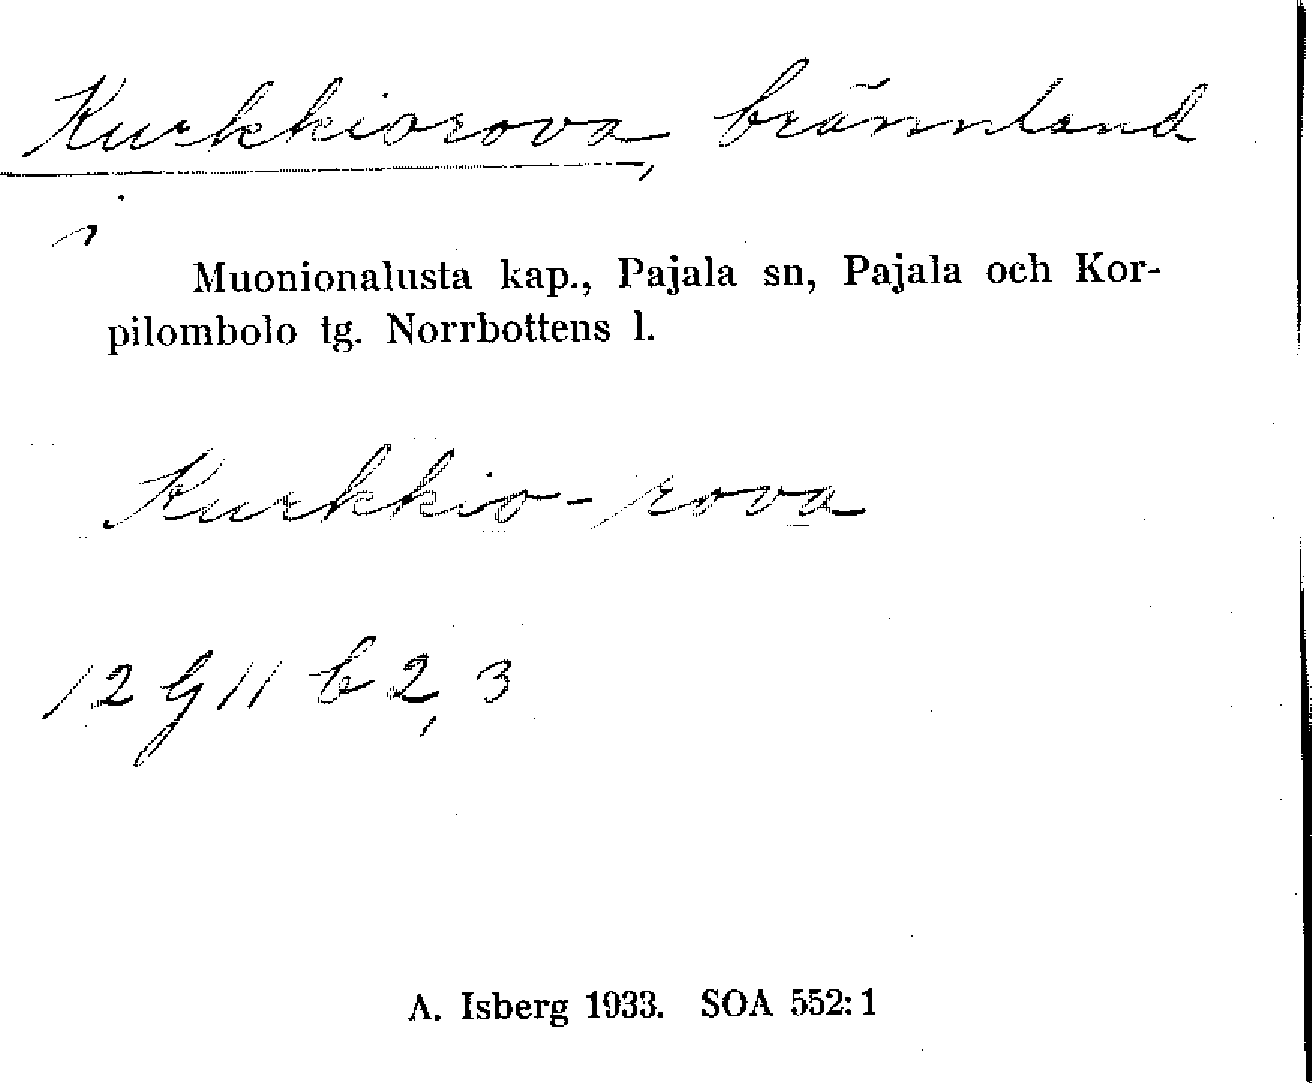 Kurkkiorova, brännland
i
Muonionalusta kap., Pajala sn, Pajala och Kor-
pilombolo tg. Norrbottens l.
Kurkkio-rova
12 G 11 b 2, 3
A. Isberg 1933. SOA 552:1